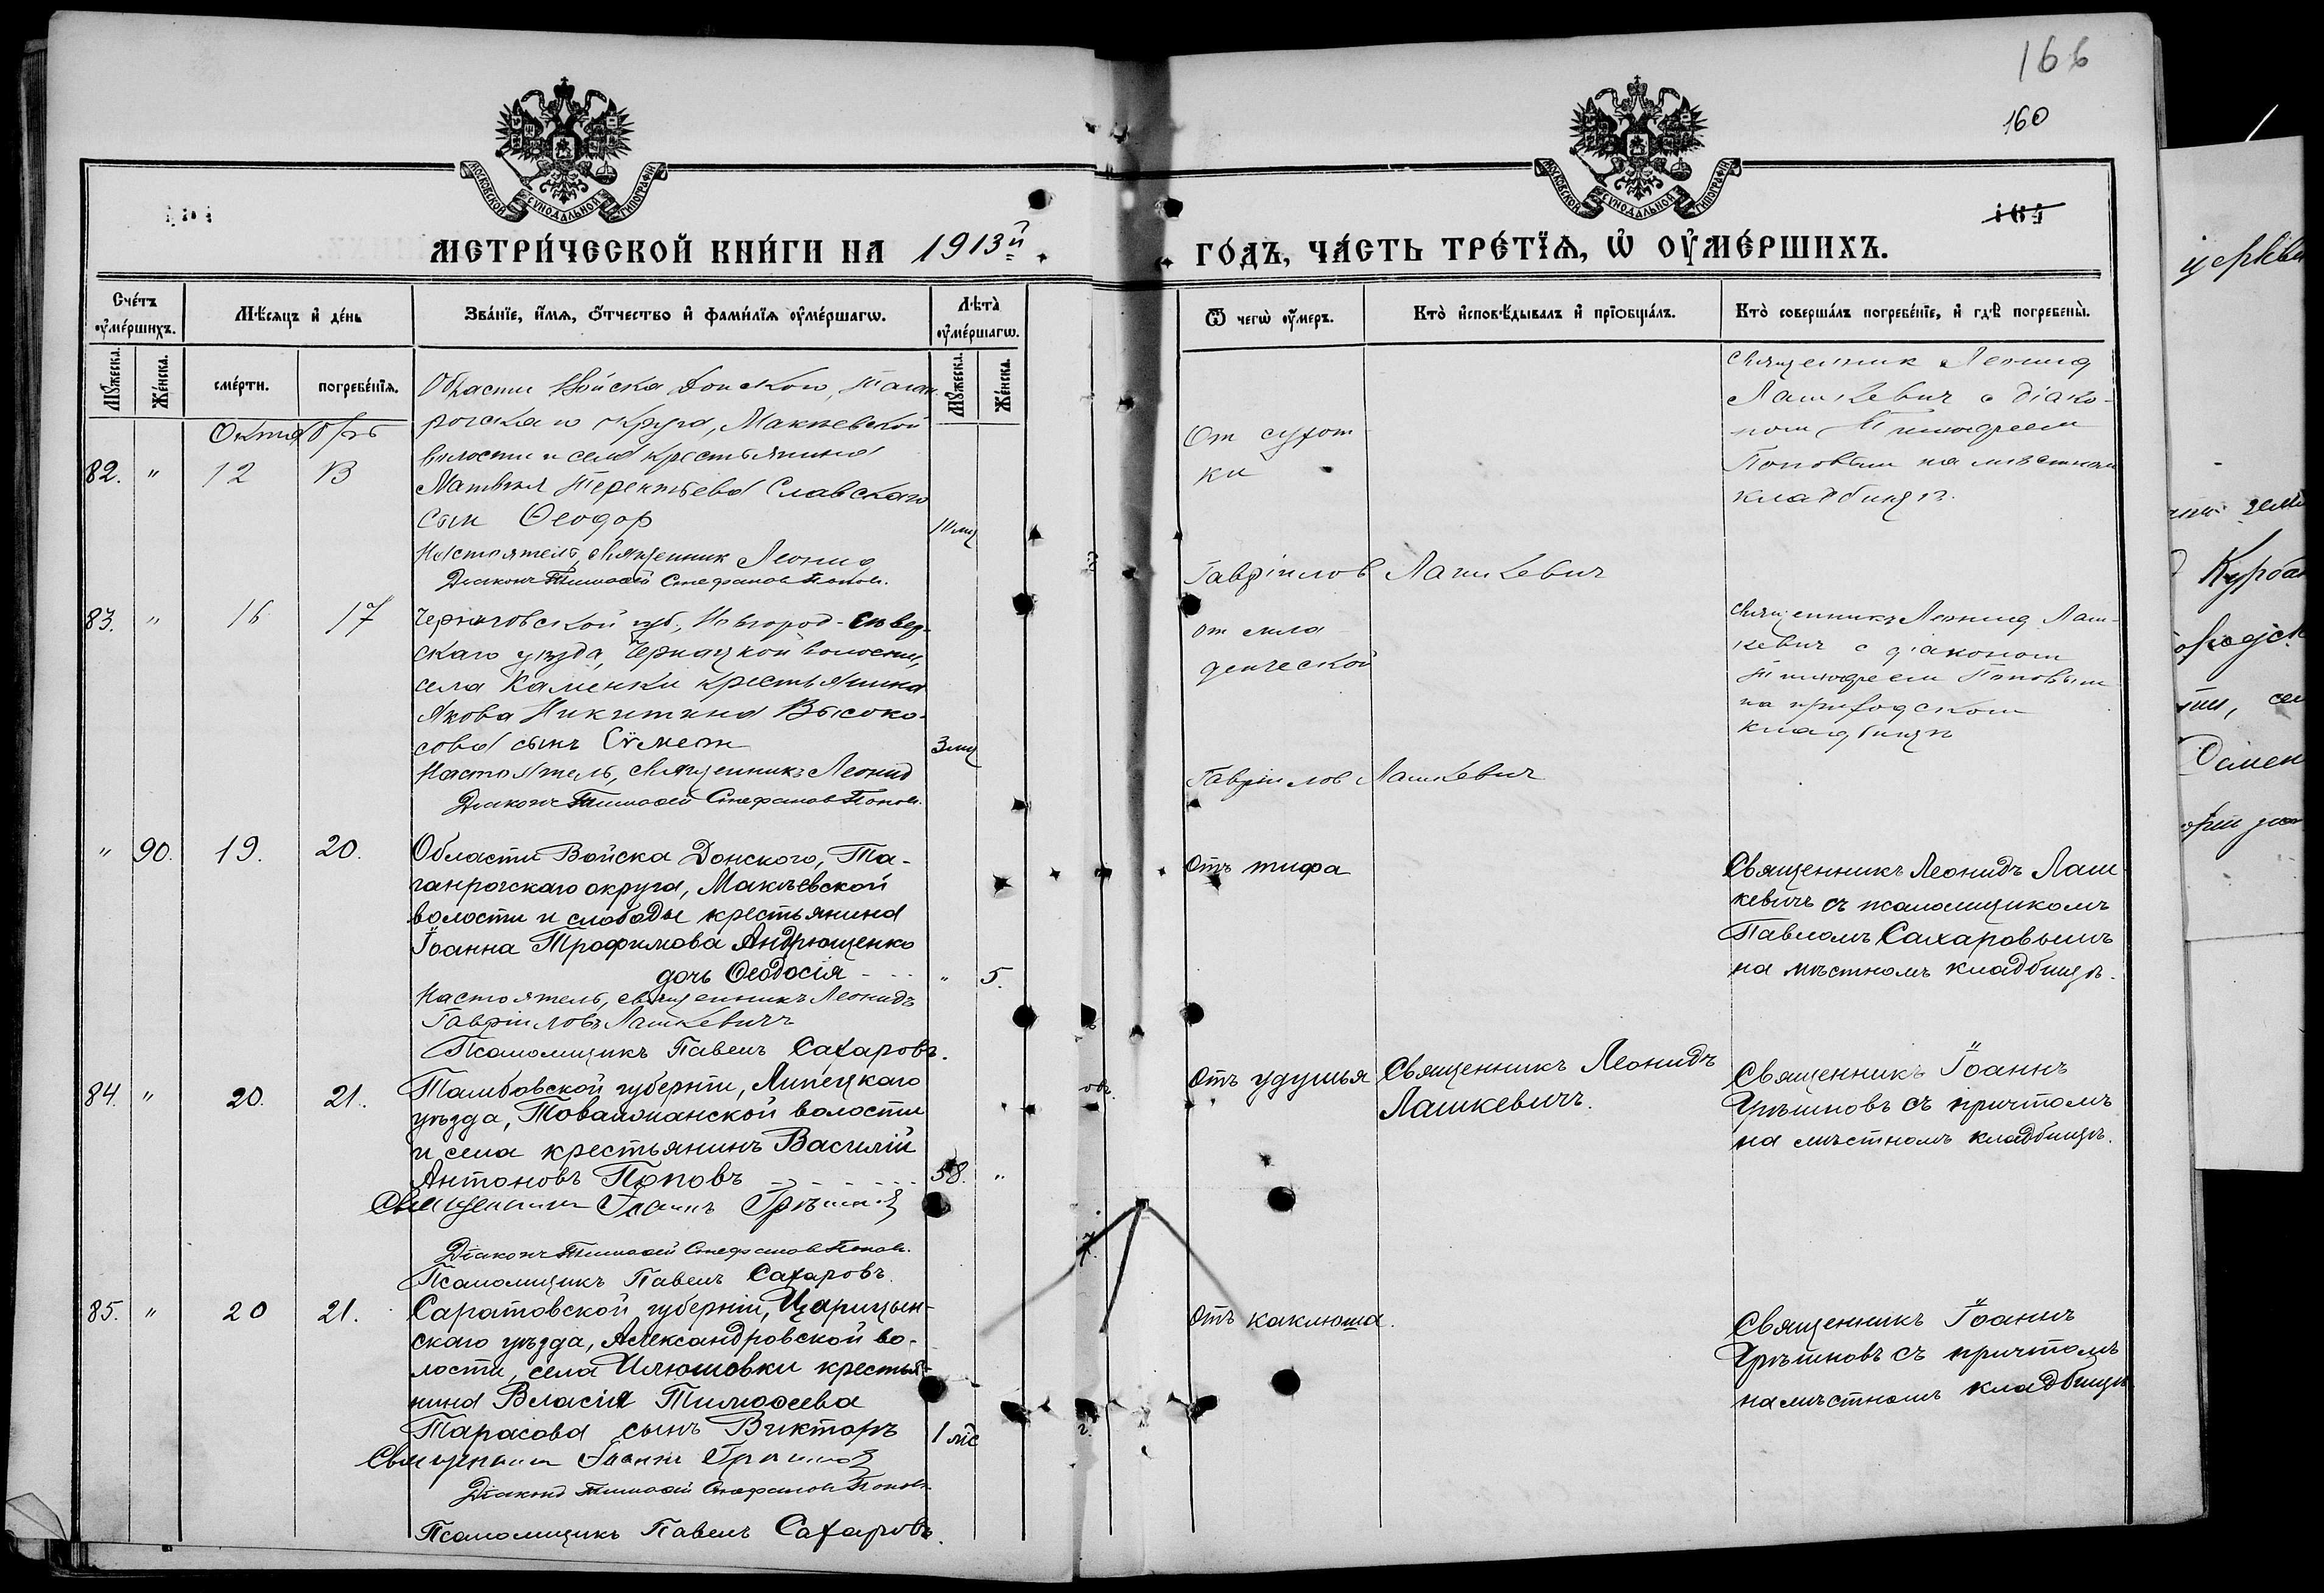 166
160
МОСКОВСКОЙ СѴНОДАЛЬНОЙ ТИПОГРАФІИ
МОСКОВСКОЙ СѴНОДАЛЬНОЙ ТИПОГРАФІИ
МЕТРИ́ЧЕСКОЙ КНИ́ГИ НА 1913й
ГО́ДЪ, ЧА́СТЬ ТРЕ́ТЇѦ, Ѡ҆ ОУ҆МЕ́РШИХЪ.
Сче́тъ оу҆ме́ршихъ.
Мѣ́сяцъ и҆ де́нь
Зва́нїе, и҆́мѧ, ѻ҆́тчество и҆ фами́лїѧ оу҆ме́ршагѡ.
Лѣта̀ оу҆ме́ршагѡ.
Ѿ чегѡ̀ оу҆́меръ.
Кто̀ и҆сповѣ́дывалъ и҆ прїѡбща́лъ.
Кто̀ соверша́лъ погребе́нїе, и҆ гдѣ̀ погребены̀.
Мꙋ́жеска.
Же́нска.
сме́рти.
погребе́нїѧ.
Мꙋ́жеска.
Же́нска.
Октябрь
82. " 12 13
Области Войска Донского, Таган-
рогскаго округа, Макеевской
волости и села крестьянина
Матвея Терентьева Славскаго
сын Ѳеодор
Настоятель, священник Леонид Гавріилов Лашкевич
Діаконъ Тимоѳей Стефановъ Поповъ.
От сухот
ки
Священник Леонид
Лашкевич с діако-
ном Тимофеем
Поповым на местном
кладбище.
83. " 16 17
Черниговской губ., Новгород-Север-
скаго уезда, Чернацкой волости,
села Каменки крестьянина
Якова Никитина Высоко-
сова сынъ Сѵмеон
3 мц
Настоятель, священникъ Леонид Гавріилов Лашкевич
Діаконъ Тимоѳей Стефановъ Поповъ.
от мла
денческой
Священникъ Леонид Лаш-
кевич с діаконом
Тимофеем Поповым
на приходском
кладбище
" 90. 19. 20.
Области Войска Донского, Та-
ганрогскаго округа, Макѣевской
волости и слободы крестьянина
Іоанна Трофимова Андрющенко
дочь Ѳеодосія - - - " 5.
Настоятель, священникъ Леонидъ
Гавріиловъ Лашкевичъ
Псаломщикъ Павелъ Сахаровъ.
Отъ тифа
Священникъ Леонидъ Лаш
кевичъ съ псаломщикомъ
Павломъ Сахаровымъ
на мѣстномъ кладбищѣ.
84. " 20. 21.
Тамбовской губерніи, Липецкаго
уѣзда, волости
и села крестьянинъ Василій
Антоновъ Поповъ 58. "
Священникъ Іоаннъ Грѣшновъ
Діаконъ Тимоѳей Стефановъ Поповъ.
Псаломщикъ Павелъ Сахаровъ.
Отъ удушья
Священникъ Леонидъ
Лашкевичъ.
Священникъ Іоаннъ
Грѣшновъ съ причтомъ
на мѣстномъ кладбищѣ.
85. " 20 21.
Саратовской губерніи, Царицын-
скаго уѣзда, Александровской во-
лости, села Илюшовки крестья-
нина Власія Тимоѳеева
Тарасова сынъ Викторъ 1 мѣс
Священникъ Іоаннъ Грѣшновъ
Діаконъ Тимоѳей Стефановъ Поповъ
Псаломщикъ Павелъ Сахаровъ.
Отъ каклюша.
Священникъ Іоаннъ
Грѣшновъ съ причтомъ
на мѣстномъ кладбищѣ